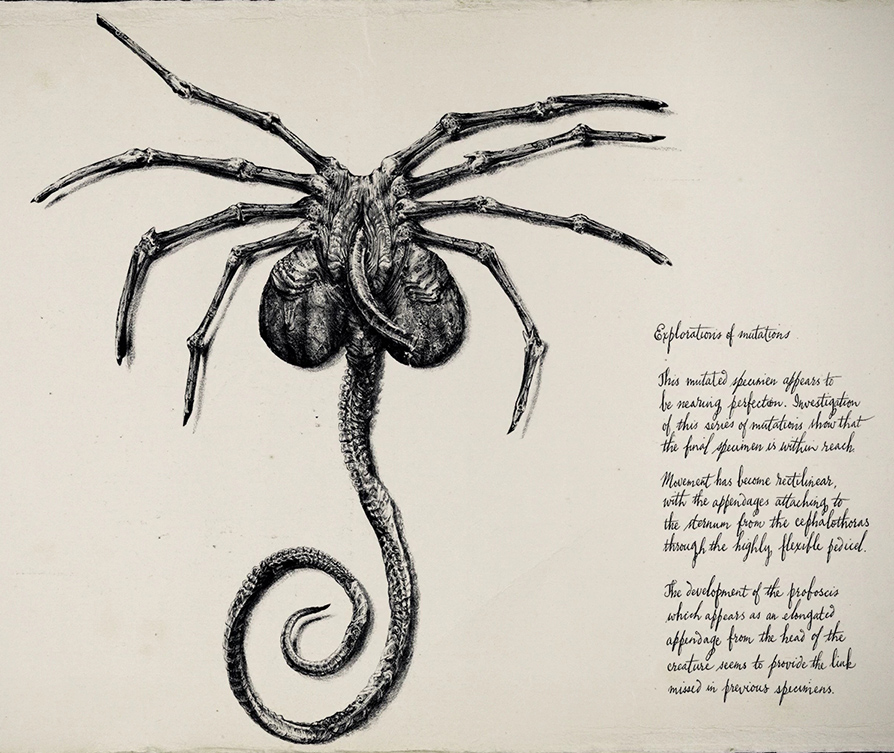 Explorations of mutations
This mutated specimen appears to
be nearing perfection. Investigation
of this series of mutations show that
the final specimen is within reach.
Movement has become rectilinear,
with the appendages attaching to
the sternum from the cephalothoras
through the highly flexible pedicel.
The development of the proboscis
which appears as an elongated
appendage from the head of the
creature seems to provide the link
missed in previous specimens.